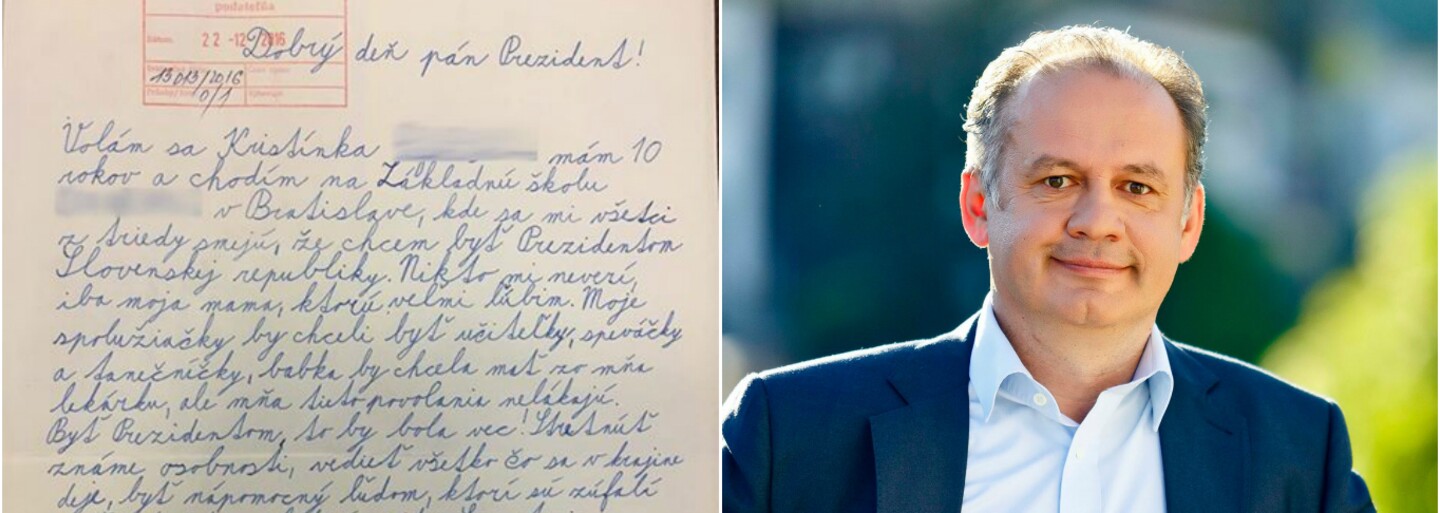 podateľňa
Dátum: 22 -12- 2016
13013/2016
0/1
Vybavuje:
Dobrý deň pán Prezident!
Volám sa Kristínka mám 10
rokov a chodím na Základnú školu
v Bratislave, kde sa mi všetci
z triedy smejú, že chcem byť Prezidentom
Slovenskej republiky. Nikto mi neverí,
iba moja mama, ktorú veľmi ľúbim. Moje
spolužiačky by chceli byť učiteľky, speváčky
a tanečníčky, babka by chcela mať zo mňa
lekárku, ale mňa tieto povolania nelákajú.
Byť Prezidentom, to by bola vec! Stretnúť
známe osobnosti, vedieť všetko čo sa v krajine
deje, byť nápomocný ľuďom, ktorí sú zúfalí